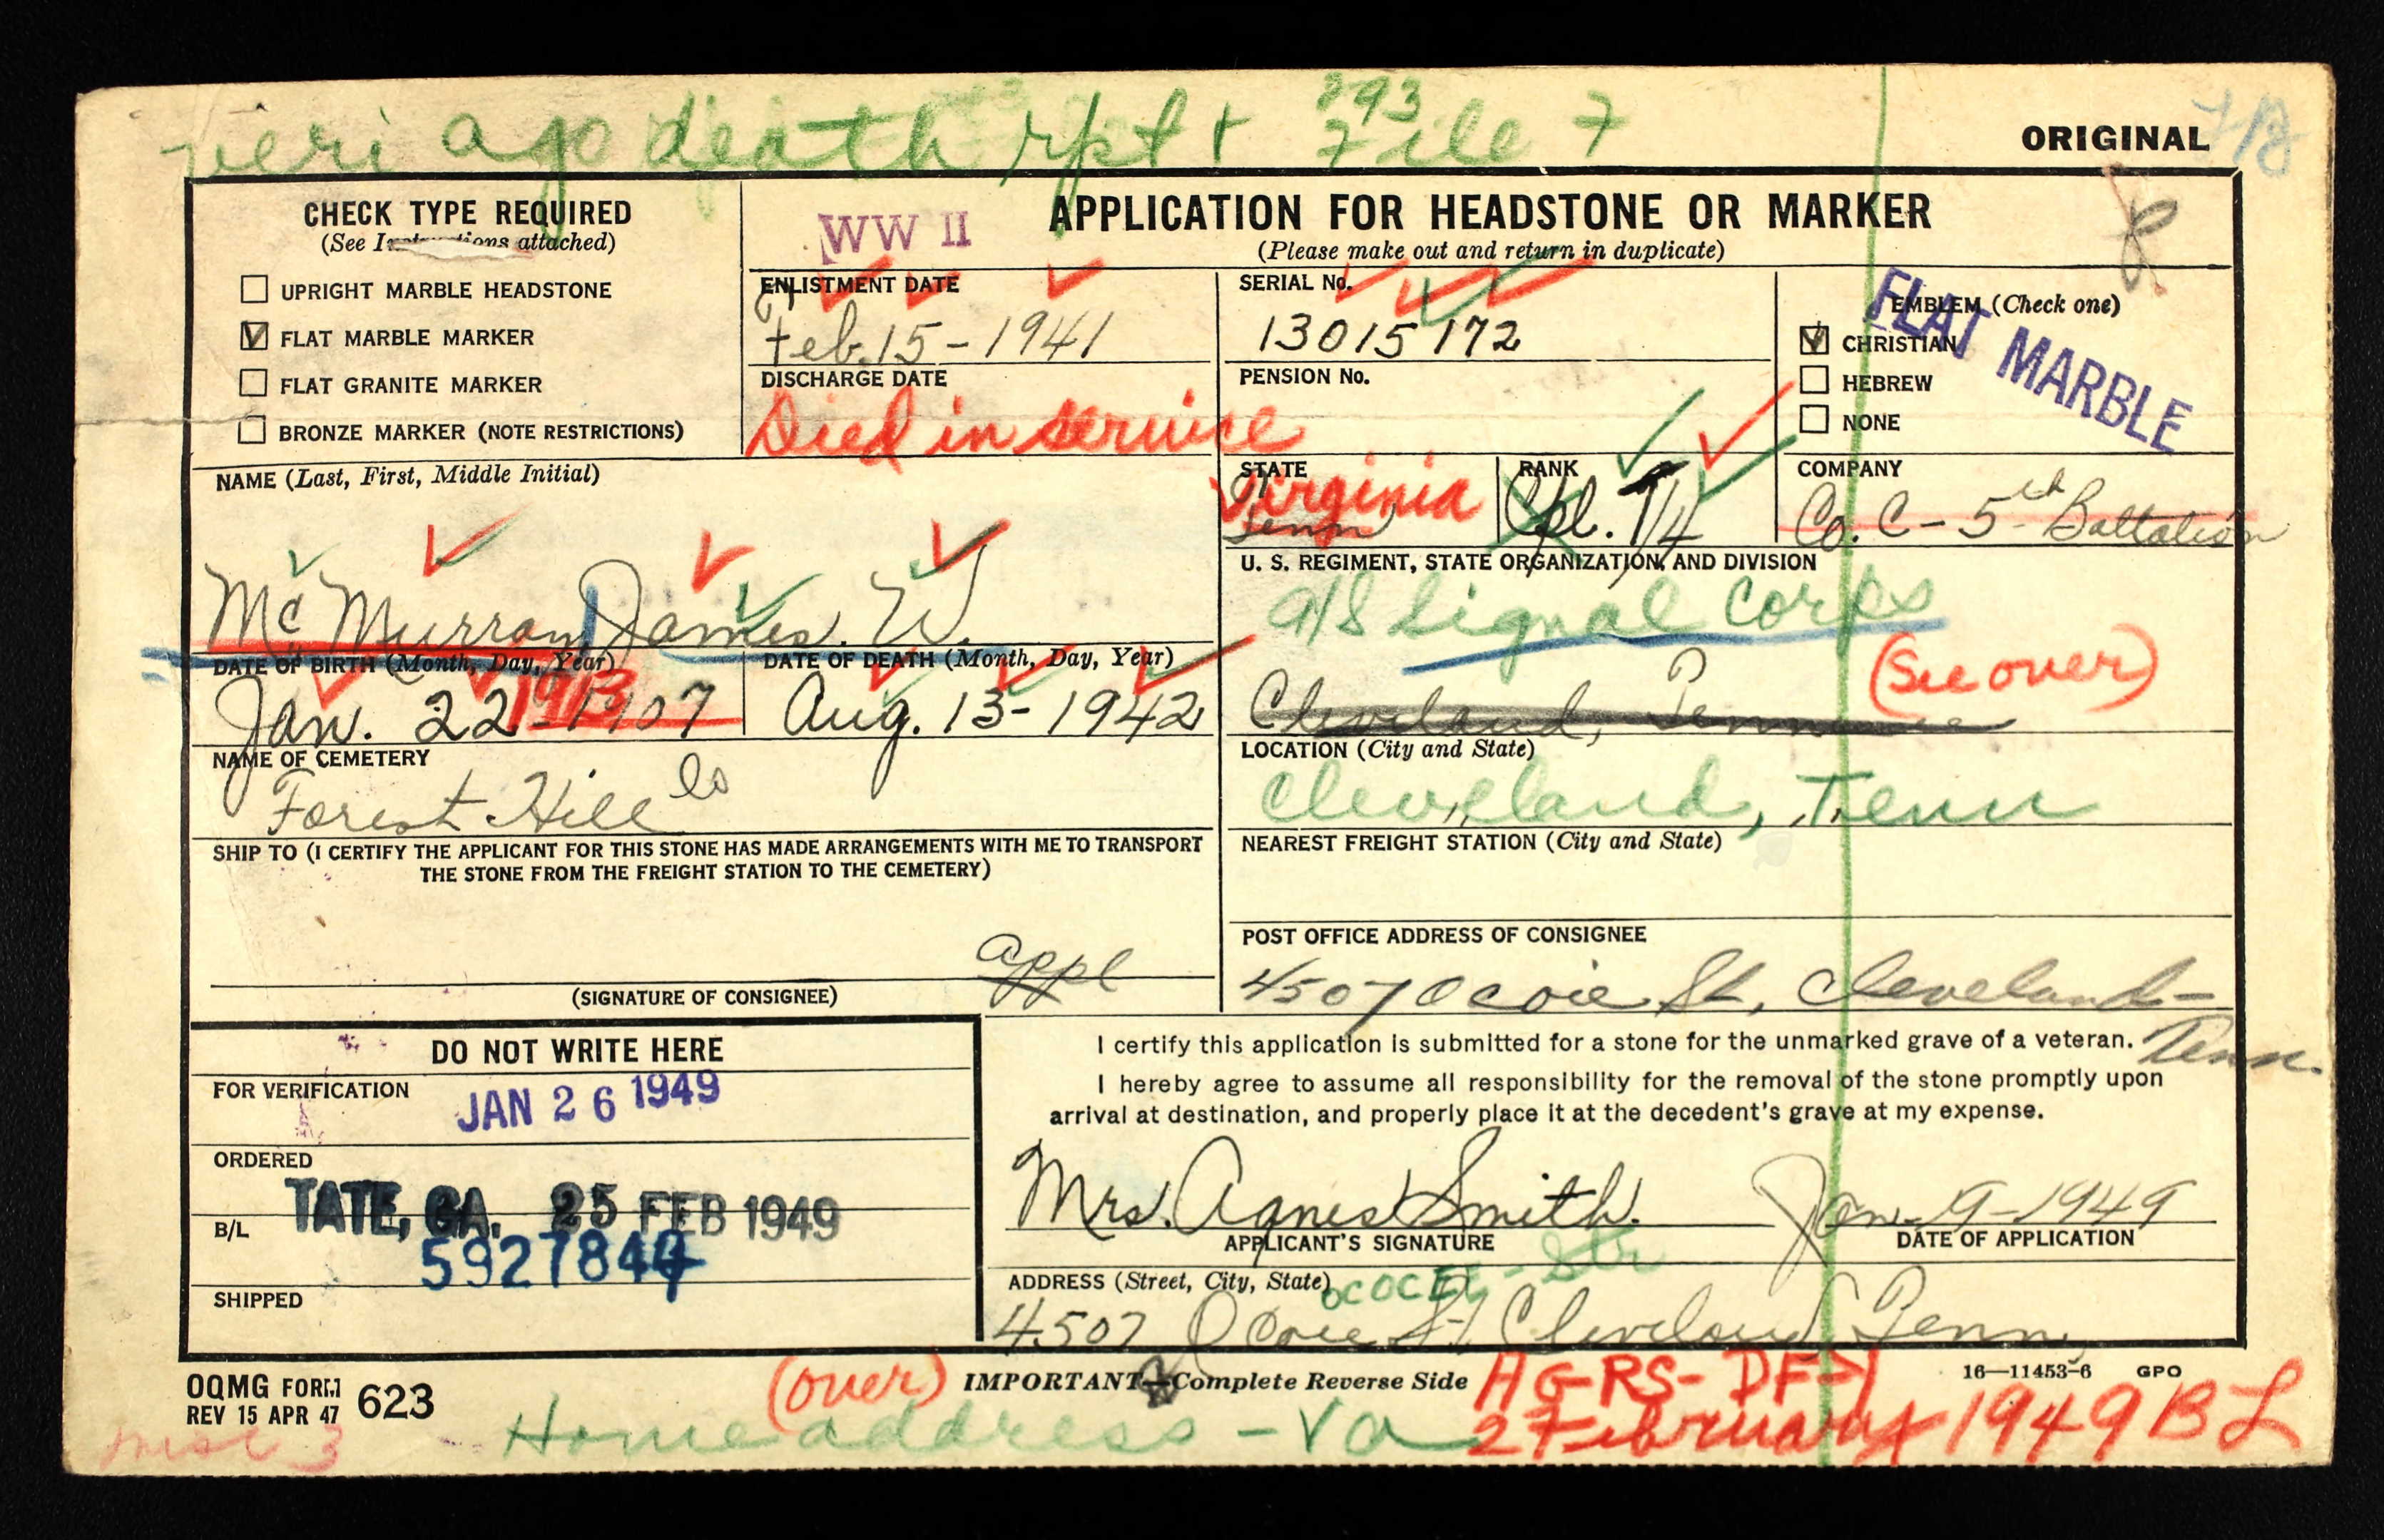 veri ago death rpt + 293 File 7
ORIGINAL
CHECK TYPE REQUIRED
(See Instructions attached)
UPRIGHT MARBLE HEADSTONE
FLAT MARBLE MARKER
FLAT GRANITE MARKER
BRONZE MARKER (NOTE RESTRICTIONS)
WW II
APPLICATION FOR HEADSTONE OR MARKER
(Please make out and return in duplicate)
ENLISTMENT DATE
Feb. 15 - 1941
DISCHARGE DATE
Died in service
SERIAL No.
13015172
PENSION No.
EMBLEM (Check one)
CHRISTIAN
HEBREW
NONE
FLAT MARBLE
NAME (Last, First, Middle Initial)
McMurray James. W.
STATE
Virginia
Tenn
RANK
Cpl. T/4
COMPANY
Co. C - 5th Battalion
U. S. REGIMENT, STATE ORGANIZATION, AND DIVISION
Signal Corps
(See over)
Cleveland, Tennessee
DATE OF BIRTH (Month, Day, Year)
Jan. 22 - 1907
1913
DATE OF DEATH (Month, Day, Year)
Aug. 13 - 1942
NAME OF CEMETERY
Forest Hill
LOCATION (City and State)
Cleveland, Tenn
SHIP TO (I CERTIFY THE APPLICANT FOR THIS STONE HAS MADE ARRANGEMENTS WITH ME TO TRANSPORT
THE STONE FROM THE FREIGHT STATION TO THE CEMETERY)
appl
(SIGNATURE OF CONSIGNEE)
NEAREST FREIGHT STATION (City and State)
POST OFFICE ADDRESS OF CONSIGNEE
4507 Ocoie St, Cleveland -
Tenn.
DO NOT WRITE HERE
FOR VERIFICATION
JAN 26 1949
ORDERED
TATE, GA. 25 FEB 1949
B/L
5927844
SHIPPED
I certify this application is submitted for a stone for the unmarked grave of a veteran.
I hereby agree to assume all responsibility for the removal of the stone promptly upon
arrival at destination, and properly place it at the decedent's grave at my expense.
Mrs. Agnes Smith. Jan - 9 - 1949
APPLICANT'S SIGNATURE
DATE OF APPLICATION
ADDRESS (Street, City, State)
OCOCEE - Str
4507 Ocoie St Cleveland Tenn
OQMG FORM 623
REV 15 APR 47
(over)
IMPORTANT—Complete Reverse Side
16—11453-6 GPO
AG-RS-DF-1
2 February 1949 BL
misc 3
Home address - Va